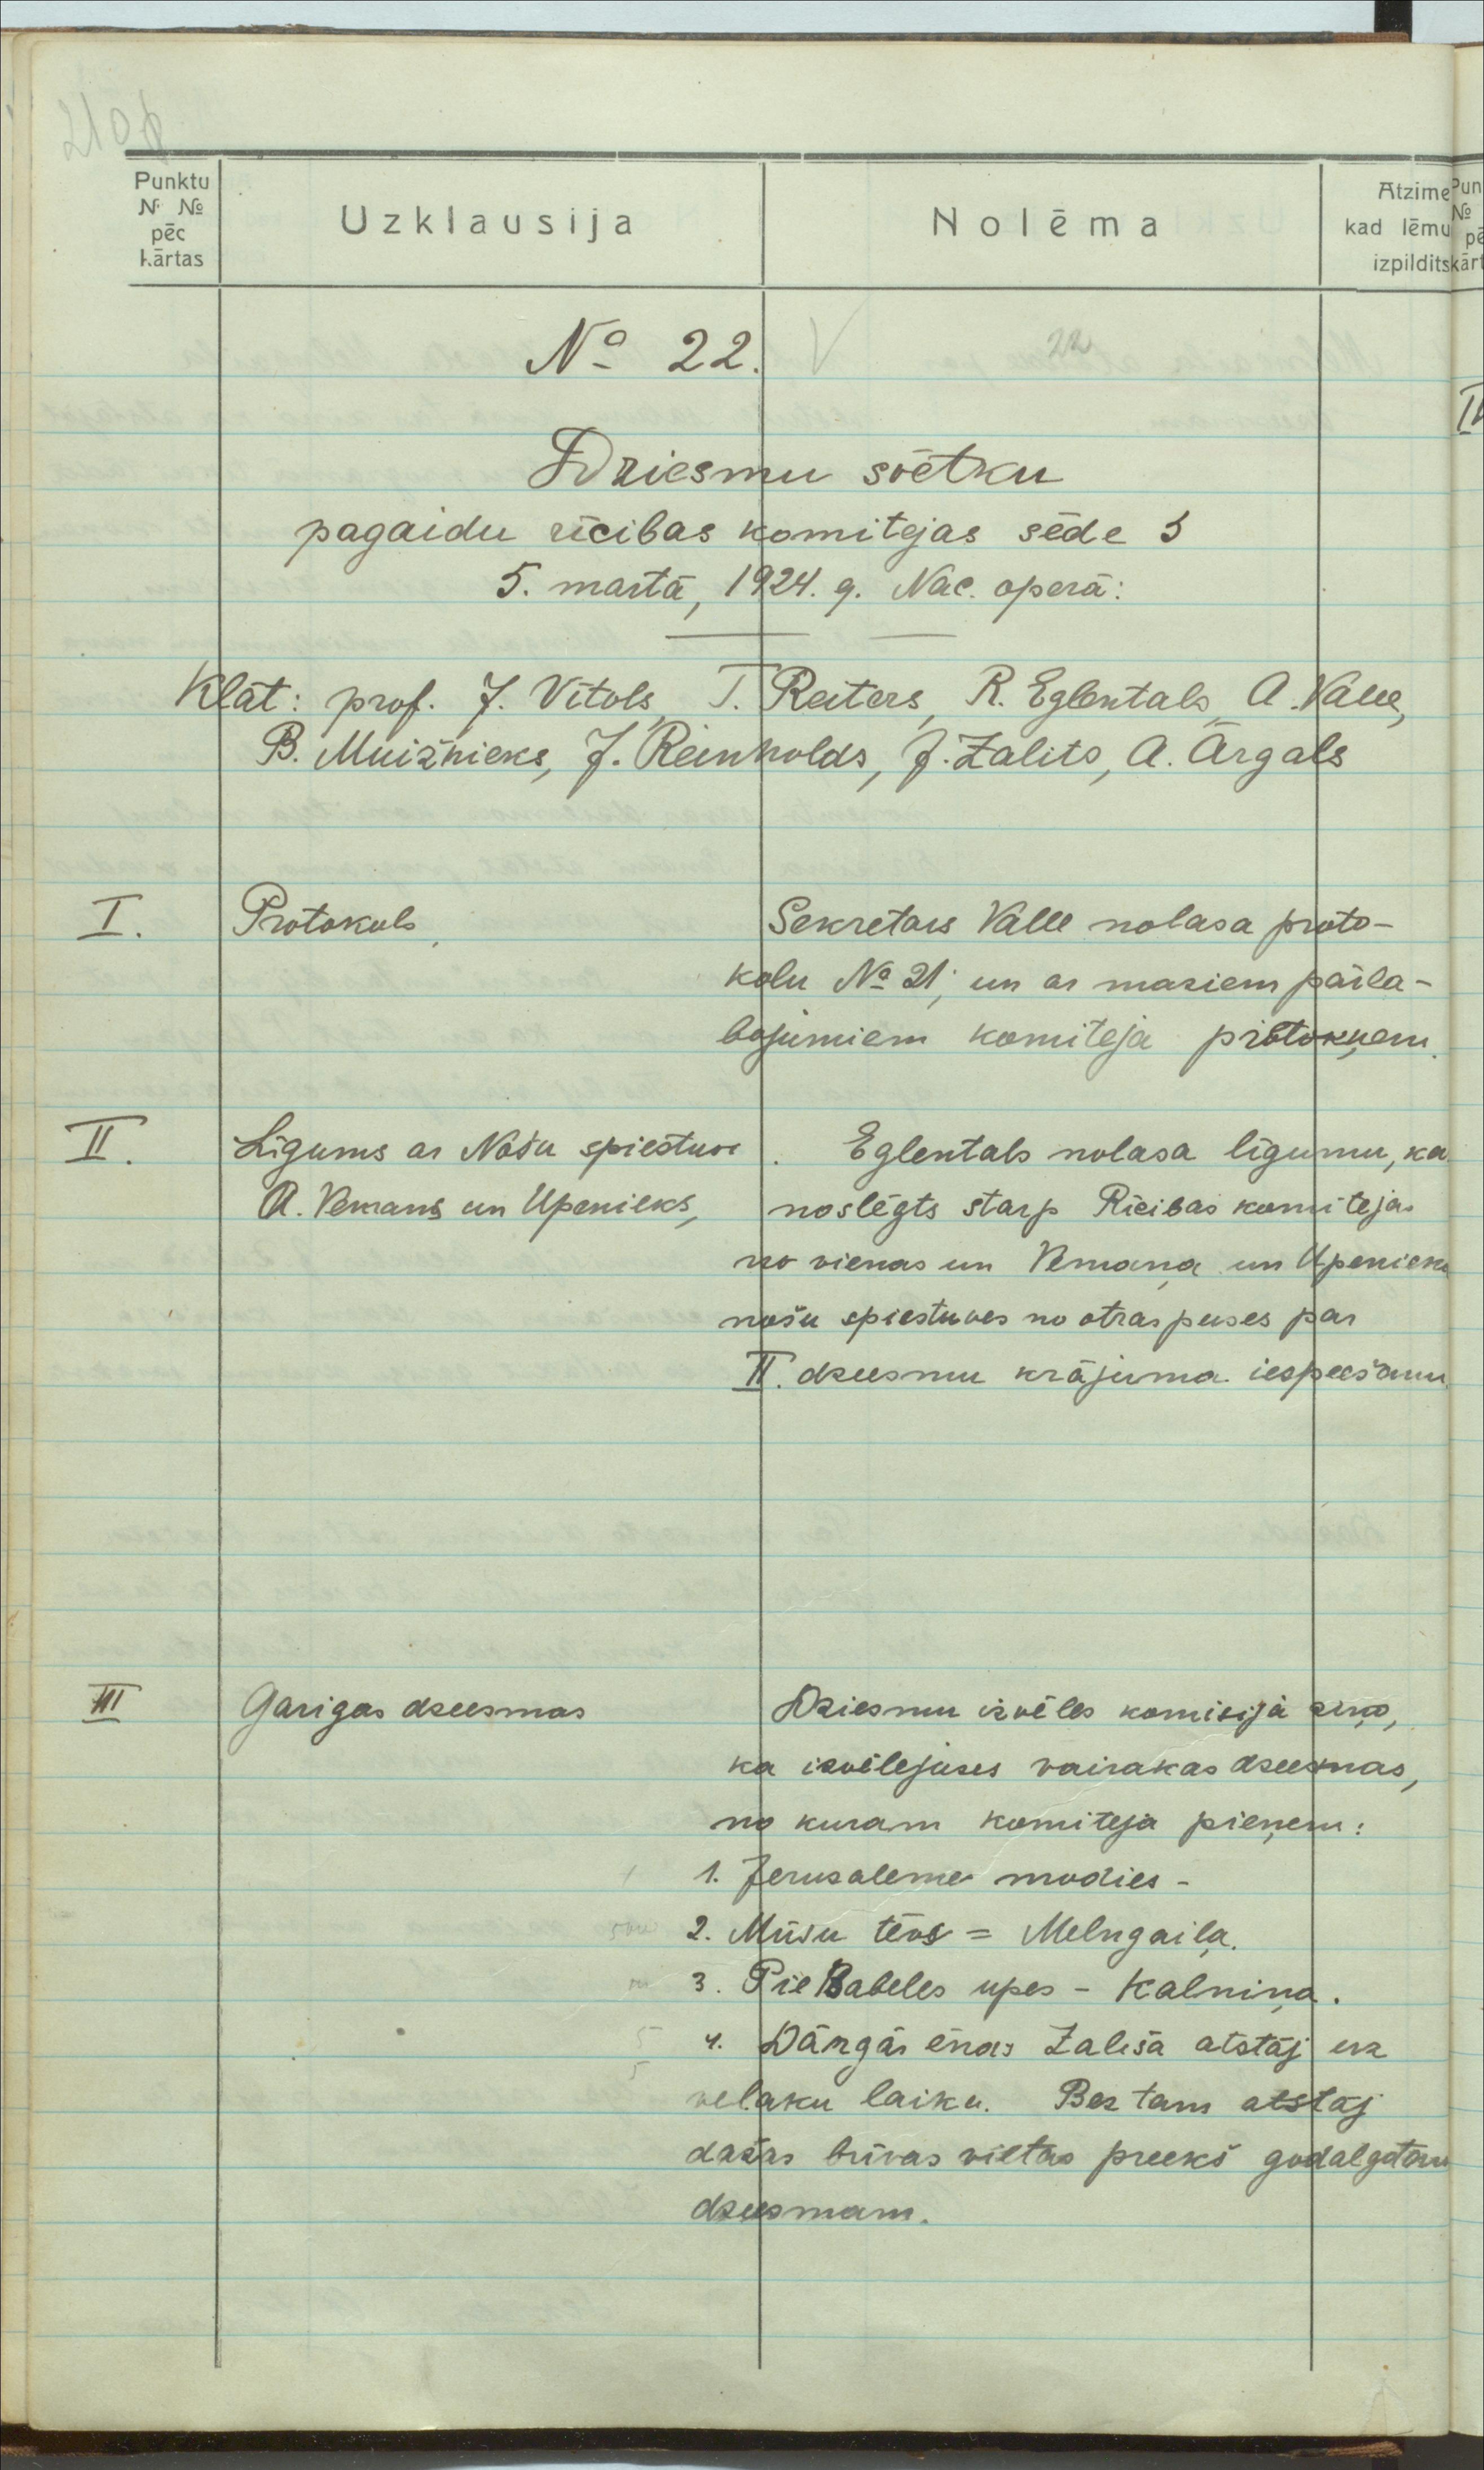 Punktu
№ №
pēc
kārtas
Uzklausija
Nolēma
Atzime
kad lēmu
izpildits
№ 22.
22
Dziesmu svētku
pagaidu rīcibas komitejas sēde
5. martā, 1924. g. Nac. operā:
Klāt: prof. J. Vītols, T. Reiters, R. Eglentals, A. Valle,
B. Muižnieks, J. Reinholds, J. Zalits, A. Ārgals
I.
Protokols
Sekretars Valle nolasa proto-
kolu № 21, un ar maziem pārla-
bojumiem komiteja
II.
Līgums ar Nošu spiestuve
A. Vemans un Upenieks,
Eglentals nolasa līgumu, ka
noslēgts starp Rīcibas komitejas
no vienas un Vemaņa un Upenieka
nošu spiestuves no otras puses par
II. dzeesmu krājuma iespeešanu
III
Garigas dzeesmas
Dziesmu izvēles komisija ziņo,
ka izvēlejuses vairakas dzeesmas,
no kuram komiteja pieņem:
1. Jerusaleme modies -
2. Mūsu tēvs = Melngaiļa.
3. Pie Babeles upes - Kalniņa.
4. Dārgās ēnas Zališa atstāj uz
velaku laiku. Bez tam atstāj
dažas brīvas vietas preekš godalgotām
dzeesmam.